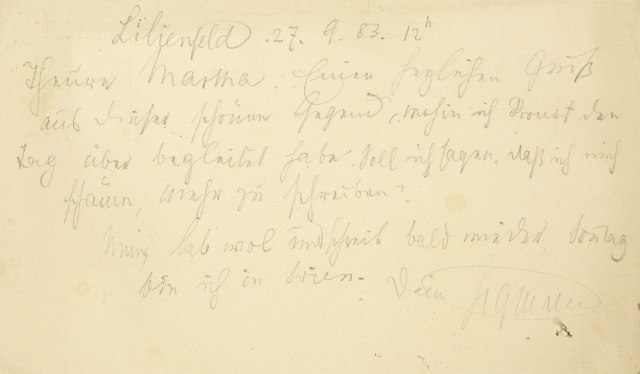 Lilienfeld. 27. 9. 83. 12h
Theure Martha. Einen herzlichen Gruß
aus dieser schönen Gegend, wohin ich den
Tag über begleitet habe. Soll ich sagen, daß ich mich
schäme, mehr zu schreiben?
Nun leb wol und schreib bald wieder Sontag
bin ich in Wien. Dein